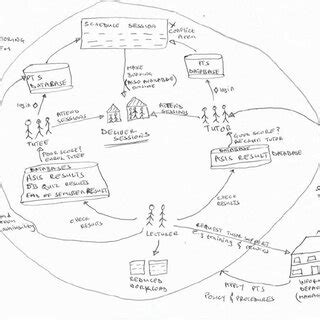 SCHEDULE SESSION
CONFLICT
AREA
PTS
DATABASE
ITS
DATABASE
MAKE
BOOKING
(ALSO AVAILABLE)
ONLINE
LOGIN
LOGIN
ATTEND
SESSIONS
ATTEND
SESSIONS
DELIVER
SESSIONS
TUTEE
TUTOR
POOR SCORE?
ENROL TUTEE
GOOD SCORE?
RECRUIT TUTOR
DATABASES
ASIS RESULTS
BB QUIZ RESULTS
END OF SEMESTER RESULT
DATABASE
ASIS RESULT
DATABASE
CHECK
RESULTS
CHECK
RESULTS
LECTURER
REQUEST TUTOR REPORT
REDUCED
WORKLOAD
APPLY PTS
POLICY & PROCEDURES